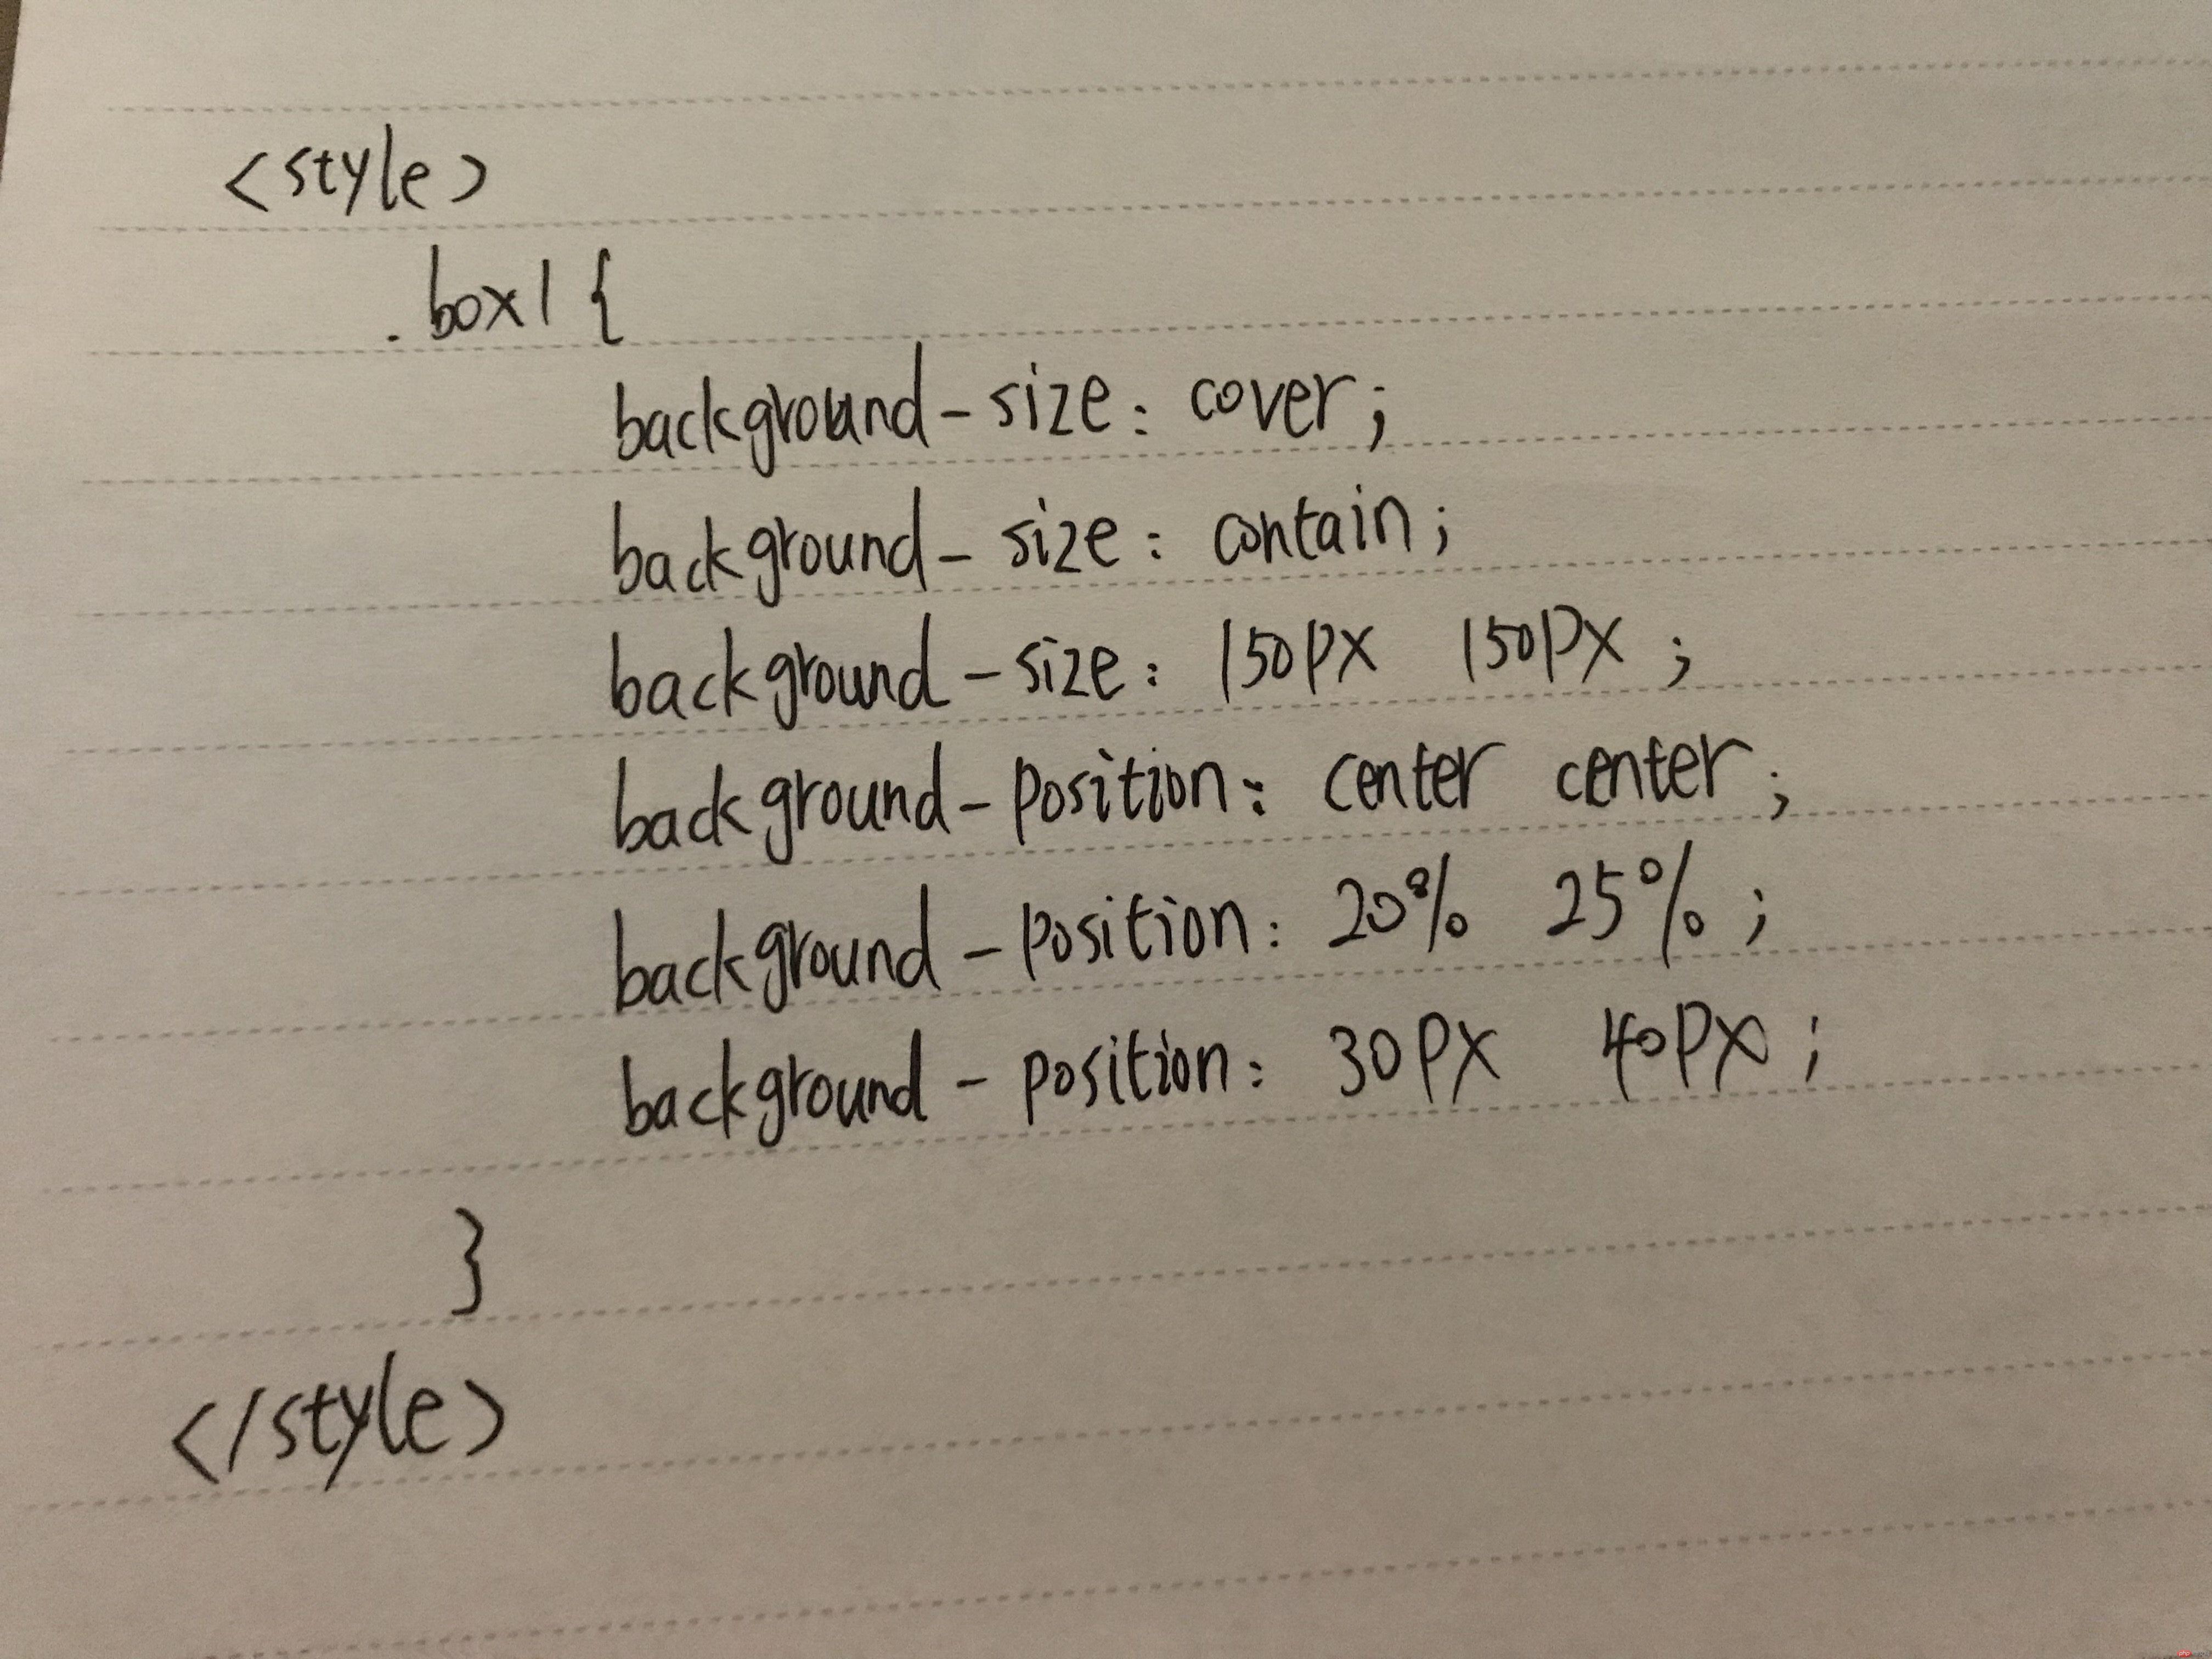 <style>
.box1 {
background-size: cover;
background-size: contain;
background-size: 150px 150px;
background-position: center center;
background-position: 20% 25%;
background-position: 30px 40px;
}
</style>
php